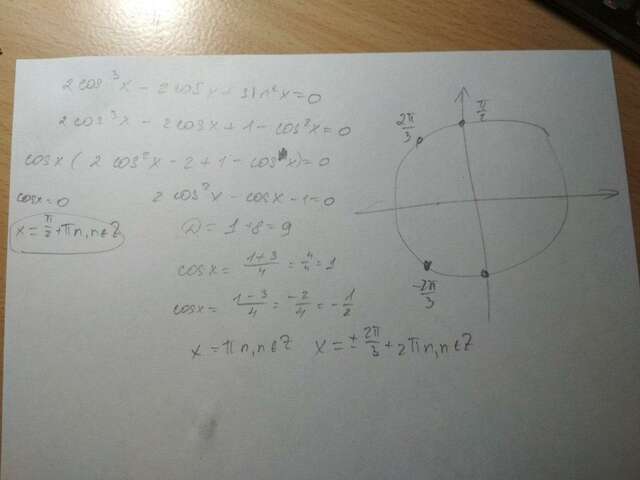 2cos³x - 2cosx + sin²x = 0
2cos³x - 2cosx + 1 - cos²x = 0
cosx(2cos²x - 2 + 1 - cosx) = 0
cosx = 0
2cos²x - cosx - 1 = 0
x = π/2 + πn, n∈Z
D = 1 + 8 = 9
cosx = (1+3)/4 = 4/4 = 1
cosx = (1-3)/4 = -2/4 = -1/2
x = πn, n∈Z x = ±2π/3 + 2πn, n∈Z
π/2
2π/3
-2π/3